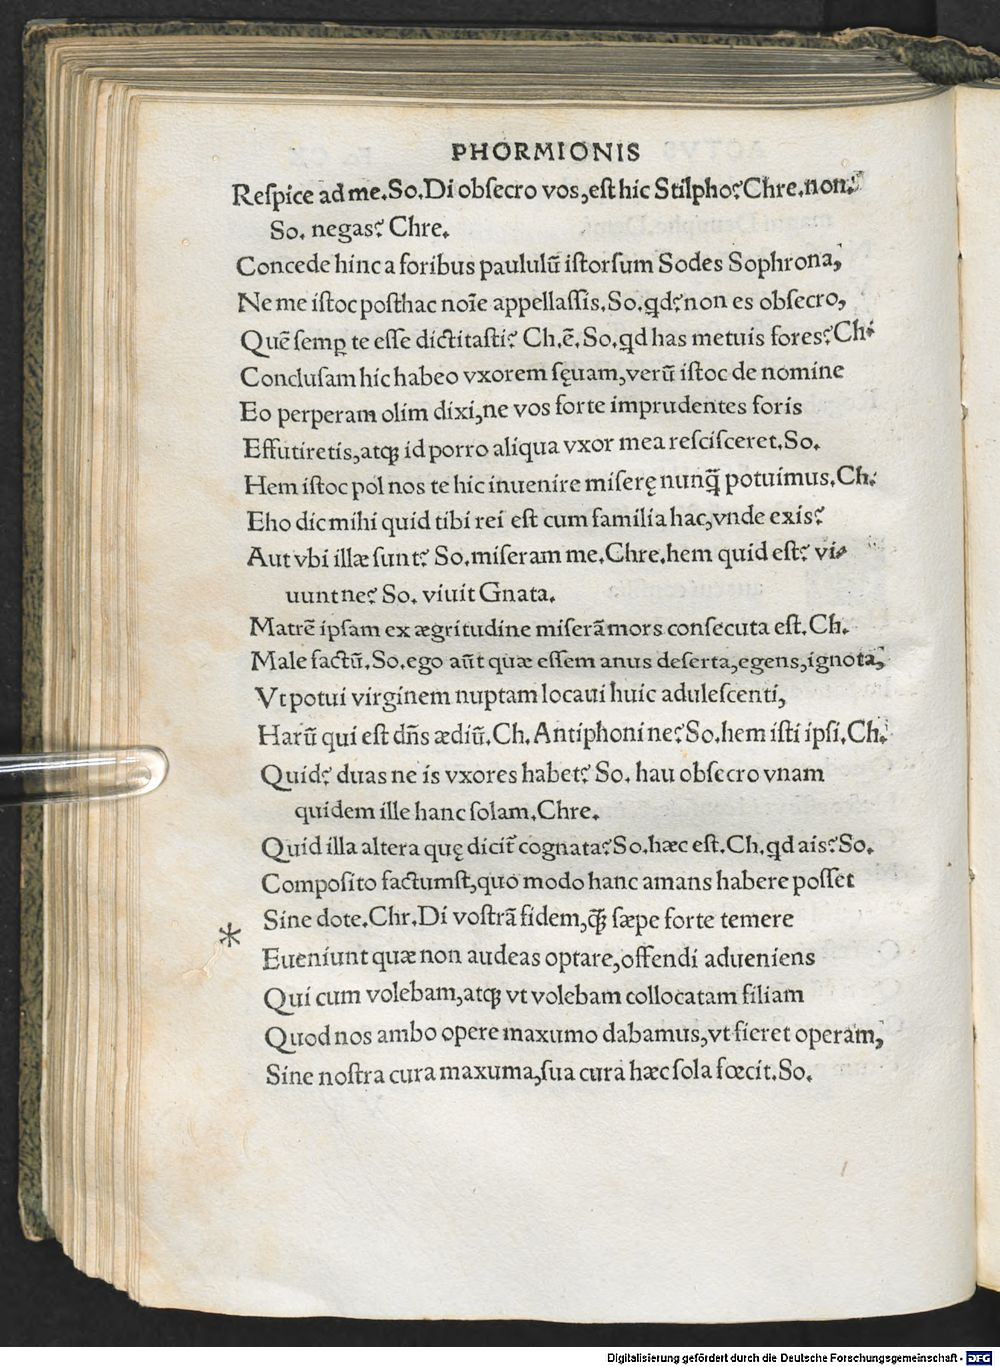 PHORMIONIS
Reſpice ad me. So. Di obſecro vos, eſt hic Stilpho? Chre. non?
So. negas? Chre.
Concede hinc a foribus paululū iſtorſum Sodes Sophrona,
Ne me iſtoc poſthac noīe appellaſſis. So. qd? non es obſecro,
Quē ſemꝑ te eſſe dictitaſti? Ch. ē. So. qd has metuis fores? Ch.
Concluſam hic habeo vxorem ſęuam, verū iſtoc de nomine
Eo perperam olim dixi, ne vos forte imprudentes foris
Effutiretis, atqꝫ id porro aliqua vxor mea reſciſceret. So.
Hem iſtoc pol nos te hic inuenire miſerę nunq̄ potuimus. Ch.
Eho dic mihi quid tibi rei eſt cum familia hac, vnde exis?
Aut vbi illæ ſunt? So. miſeram me. Chre. hem quid eſt? vi-
uunt ne? So. viuit Gnata.
Matrē ipſam ex ægritudine miſerā mors conſecuta eſt. Ch.
Male factū. So. ego aūt quæ eſſem anus deſerta, egens, ignota,
Vt potui virginem nuptam locaui huic aduleſcenti,
Harū qui eſt dn̄s ædiū. Ch. Antiphoni ne? So. hem iſti ipſi. Ch.
Quid? duas ne is vxores habet? So. hau obſecro vnam
quidem ille hanc ſolam. Chre.
Quid illa altera quę dicit̄ cognata? So. hæc eſt. Ch. qd ais? So.
Compoſito factumſt, quo modo hanc amans habere poſſet
Sine dote. Chr. Di voſtrā fidem, q̄ꝫ ſæpe forte temere
* Eueniunt quæ non audeas optare, offendi adueniens
Qui cum volebam, atqꝫ vt volebam collocatam filiam
Quod nos ambo opere maxumo dabamus, vt fieret operam,
Sine noſtra cura maxuma, ſua cura hæc ſola fœcit. So.
Digitalisierung gefördert durch die Deutsche Forschungsgemeinschaft - DFG